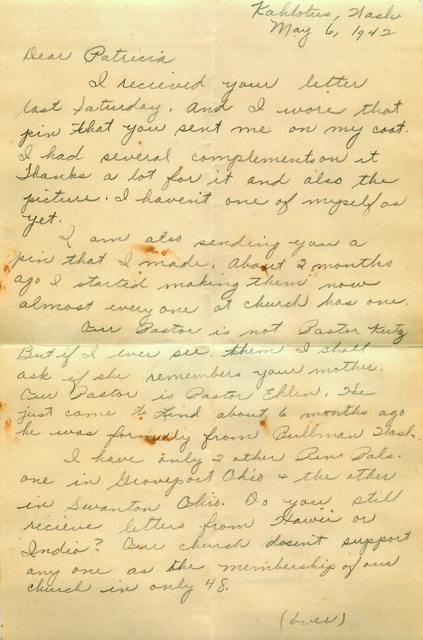 Kahlotus, Wash
May 6, 1942
Dear Patricia
I recieved your letter
last Saturday. And I wore that
pin that you sent me on my coat.
I had several complements on it
Thanks a lot for it and also the
picture. I havent one of myself as
yet.
I am also sending you a
pin that I made. About 2 months
ago I started making them now
almost everyone at church has one.
Our Pastor is not Pastor Kutz
But if I ever see them I shall
ask if she remembers your mother.
Our Pastor is Pastor Ehlen. He
just came to Lind about 6 months ago
he was formerly from Pullman Wash.
I have only 2 other Pen Pals.
one in Groveport Ohio & the other
in Swanton Ohio. Do you still
recieve letters from Hawii or
India? Our church doesn't support
any one as the membership of our
church in only 48.
(over)